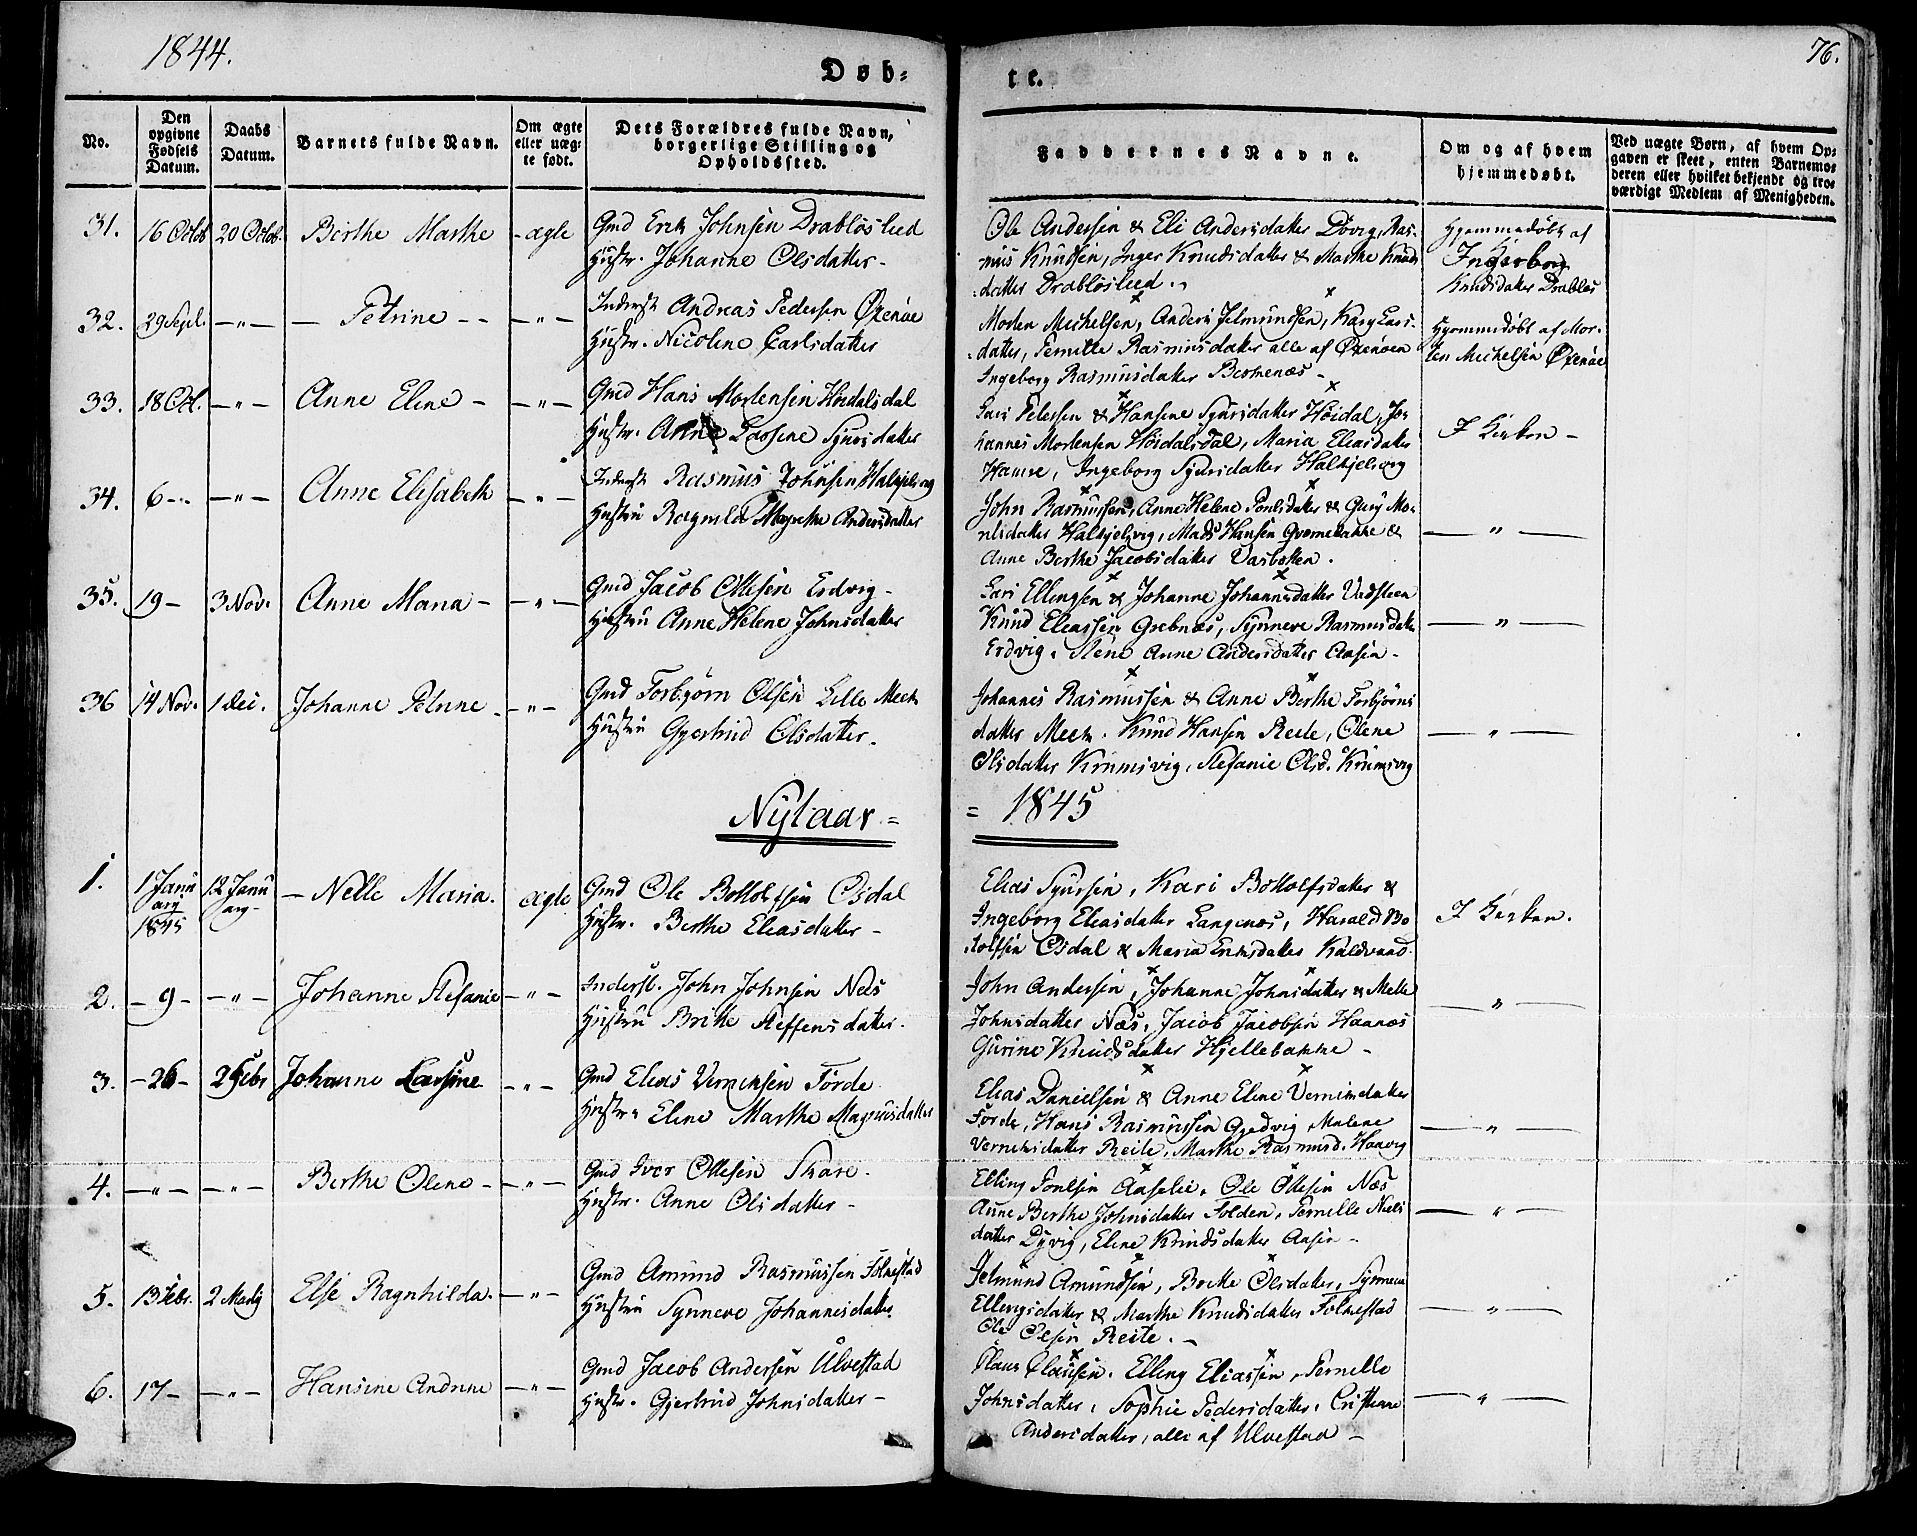 1844.
76.
Døb-
te.
No.
Den opgivne Fødsels Datum.
Daabs Datum.
Barnets fulde Navn.
Om ægte eller uæg-te født.
Dets Forældres fulde Navn, borgerlige Stilling og Opholdssted.
Faddernes Navne.
Om og af hvem hjemmedøbt.
Ved uægte Børn, af hvem Op-gaven er skeet, enten Barnemo-deren eller hvilket bekjendt og tro-værdigt Medlem af Menigheden.
31. 16 Octob 20 Octob. Berthe Marthe - ægte
Gmd Erik Johnsen Drabløslied
Hustr. Johanne Olsdatter -
Ole Andersen & Eli Andersdatter Døvig, Ras-
mus Knudsen, Inger Knudsdatter & Marthe Knuds
datter Drabløslied.
Hjemmedøbt af
Ingeborg
Knudsdatter Drabløs
32. 29 Sept. - " - - Petrine - - - " -
Inderst Andreas Pedersen Øxenøe
Hustr. Nicoline Carlsdatter
Morten Michelsen, Anders Jelmundsen, Kary Lars-
datter, Pernille Rasmusdatter alle af Øxenøen
Ingeborg Rasmusdatter Bermenæs -
Hjemmedøbt af Mor-
ten Michelsen Øxenøe
33. 18 Oct. - " - Anne Eline - - " -
Gmd Hans Mortensen Høidalsdal
Hustr. Anne Lassine Sjursdatter
Lars Petersen & Hansine Sjursdatter Høidal, Jo-
hannes Mortensen Høidalsdal, Maria Eliasdatter
Hamre, Ingeborg Sjursdatter Halkjelsvig
I Kirken -
34. 6 - - " - Anne Elisabeth - " -
Inderst Rasmus Johnsen Halkjelsvig
Hustru Ragnild Magrethe Andersdatter
John Rasmussen, Anne Helene Poulsdatter & Gury Mo-
nsdatter Halkjelsvig, Mads Hansen Qvernebakke &
Anne Berthe Jacobsdatter Varbotten.
- " -
35. 19 - 3 Nov. Anne Maria - - " -
Gmd Jacob Ottesen Erdvig -
Hustru Anne Helene Johnsdatter
Lars Ellingsen & Johanne Johannesdatter Vadsteen
Knud Eliassen Grebnæs, Synneve Rasmusdatter
Erdvig, Stene Anne Andersdatter Aasen -
- " -
36 14 Nov. 1 Dec. Johanne Petrine - " -
Gmd Torbjørn Olsen Lille Meek
Hustru Gjertrud Olsdatter.
Johannes Rasmussen & Anne Berthe Torbjørns
datter Meek. Knud Hansen Reite, Olene
Olsdatter Krumsvig, Stefanie Olsd. Krumsvig
- " -
Nytaar =
= 1845
1. 1 Janu ary 1845 12 Janu ary - - Nelle Maria. ægte
Gmd Ole Bottolfsen Osdal
Hustr. Berthe Eliasdatter -
Elias Sjursen, Kari Bottolfsdatter &
Ingeborg Eliasdatter Langenæs, Harald Bo
tolfsen Osdal & Maria Eriksdatter Kaldvand.
I Kirken.
2. - 9 - - " - Johanne Stefanie - " -
Inderst. John Johnsen Næs
Hustru Brithe Steffensdatter.
John Andersen, Johanne Johnsdatter & Mette
Johnsdatter Næs, Jacob Jacobsen Haanæs
Gurine Knudsdatter Hjellebakke -
- " -
3. - 26 - 2 Febr Johanne Larsine - " -
Gmd Elias Verniksen Førde
Hustru Eline Marthe Magnusdatter
Elias Danielsen & Anne Eline Verniksdatter
Førde, Hans Rasmussen Gjedvig, Malene
Verniksdatter Reite, Marthe Rasmusd. Haavig
- " -
4. - " - - " - Berthe Olene - - " -
Gmd Iver Ottesen Skare.
Hustr. Anne Olsdatter -
Elling Poulsen Aaselie, Ole Ottesen Næs
Anne Berthe Johnsdatter Folden, Pernille Niels
datter Dyvig, Eline Knudsdatter Aasen -
- " -
5. 13 Febr. 2 Marty Else Ragnhilda - " -
Gmd Amund Rasmussen Folkestad
Hustru Synneve Johannesdatter
Jelmund Amundsen, Berthe Olsdatter, Synneve
Ellingsdatter & Marthe Knudsdatter Folkestad
Ole Olsen Reite. -
- " -
6. 17 - - " - Hansine Andrine - " -
Gmd Jacob Andersen Ulvestad
Hustr. Gjertrud Johnsdatter -
Claus Clausen, Elling Eliassen, Pernille
Johnsdatter, Sophie Pedersdatter, Cristiane
Andersdatter, alle af Ulvestad -
- " -